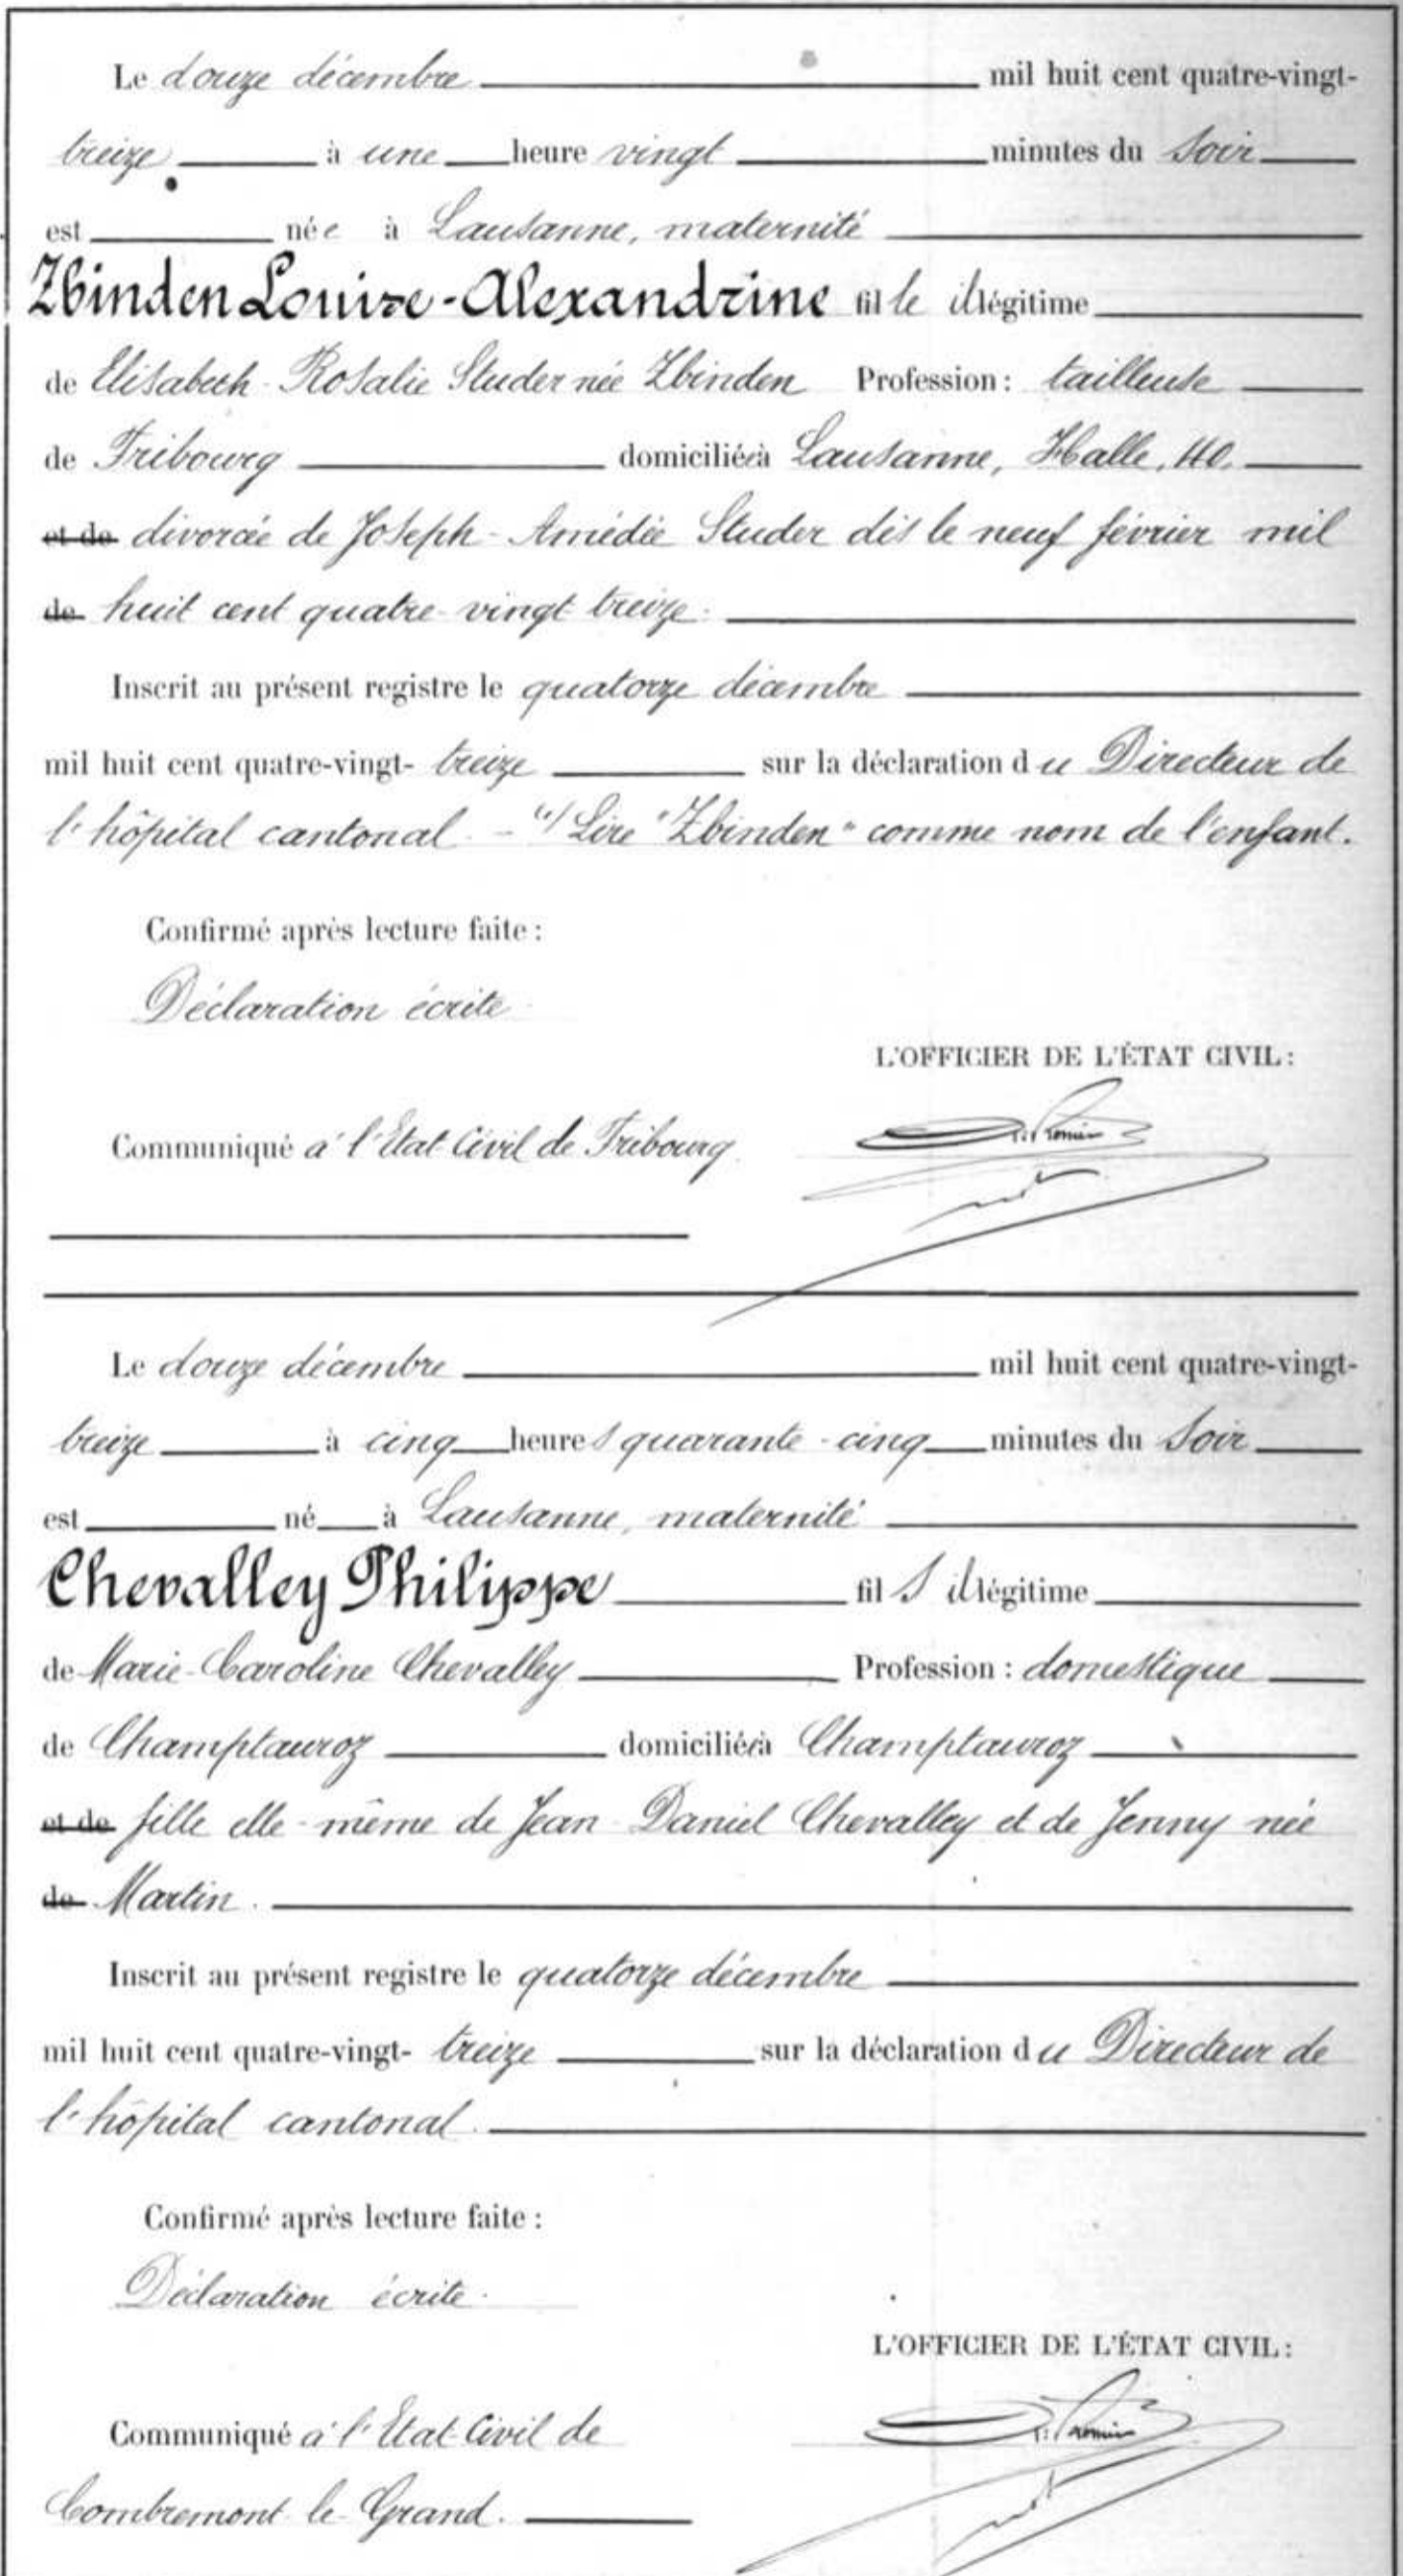 Le douze décembre mil huit cent quatre-vingt-
treize à une heure vingt minutes du soir
est née à Lausanne, maternité
Zbinden Louise-Alexandrine fille illégitime
de Elisabeth-Rosalie Studer née Zbinden Profession: tailleuse
de Fribourg domiciliée à Lausanne, Halle, 40.
et de divorcée de Joseph-Amédée Studer dès le neuf février mil
de huit cent quatre-vingt-treize.
Inscrit au présent registre le quatorze décembre
mil huit cent quatre-vingt- treize sur la déclaration du Directeur de
l'hôpital cantonal. - "/ Lire "Zbinden" comme nom de l'enfant.
Confirmé après lecture faite :
Déclaration écrite.
L'OFFICIER DE L'ÉTAT CIVIL :
Communiqué à l'Etat-Civil de Fribourg.
Le douze décembre mil huit cent quatre-vingt-
treize à cinq heures quarante-cinq minutes du soir
est né à Lausanne, maternité
Chevalley Philippe fils illégitime
de Marie-Caroline Chevalley Profession : domestique
de Champtauroz domiciliée à Champtauroz
et de fille elle-même de Jean-Daniel Chevalley et de Jenny née
de Martin.
Inscrit au présent registre le quatorze décembre
mil huit cent quatre-vingt- treize sur la déclaration du Directeur de
l'hôpital cantonal.
Confirmé après lecture faite :
Déclaration écrite.
L'OFFICIER DE L'ÉTAT CIVIL :
Communiqué à l'Etat-Civil de
Combremont-le-Grand.